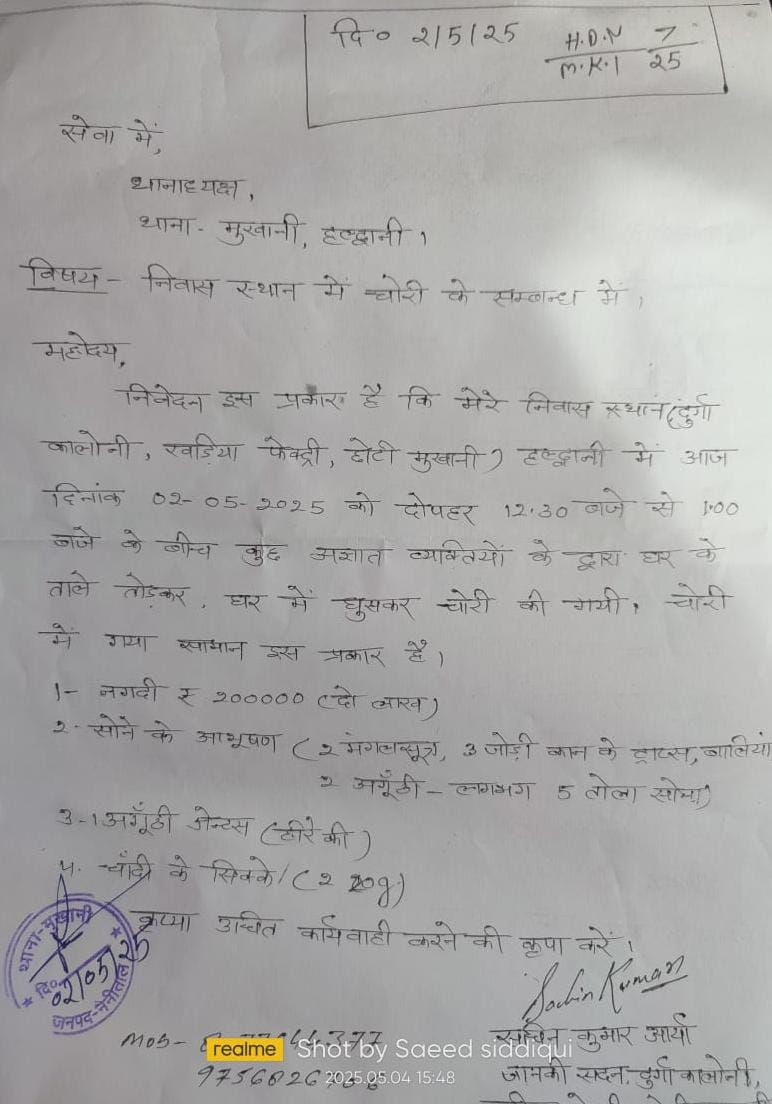 दि० 2/5/25 H.D.N 7
M.K.1 25
सेवा में,
थानाध्यक्ष,
थाना- मुखानी, हल्द्वानी।
विषय - निवास स्थान में चोरी के सम्बन्ध में।
महोदय,
निवेदन इस प्रकार है कि मेरे निवास स्थान (दुर्गा
कालोनी, खड़िया फेक्ट्री, छोटी मुखानी) हल्द्वानी में आज
दिनांक 02-05-2025 को दोपहर 12.30 बजे से 1.00
बजे के बीच कुछ अज्ञात व्यक्तियों के द्वारा घर के
ताले तोड़कर, घर में घुसकर चोरी की गयी। चोरी
में गया सामान इस प्रकार है।
1- नगदी ₹ 200000 (दो लाख)
2- सोने के आभूषण (2 मंगलसूत्र, 3 जोड़ी कान के टाप्स, बालियां
2 अगूँठी - लगभग 5 तोला सोना)
3-1 अगूँठी जेन्टस (हीरे की)
4. चाँदी के सिक्के (2 20g)
कृप्या उचित कार्यवाही करने की कृपा करें।
थाना-मुखानी
दि० 02/05/25
जनपद-नैनीताल
Sachin Kumar
सचिन कुमार आर्या
जानकी सदन, दुर्गा कालोनी,
Mob-
realme Shot by Saeed siddiqui
2025.05.04 15:48